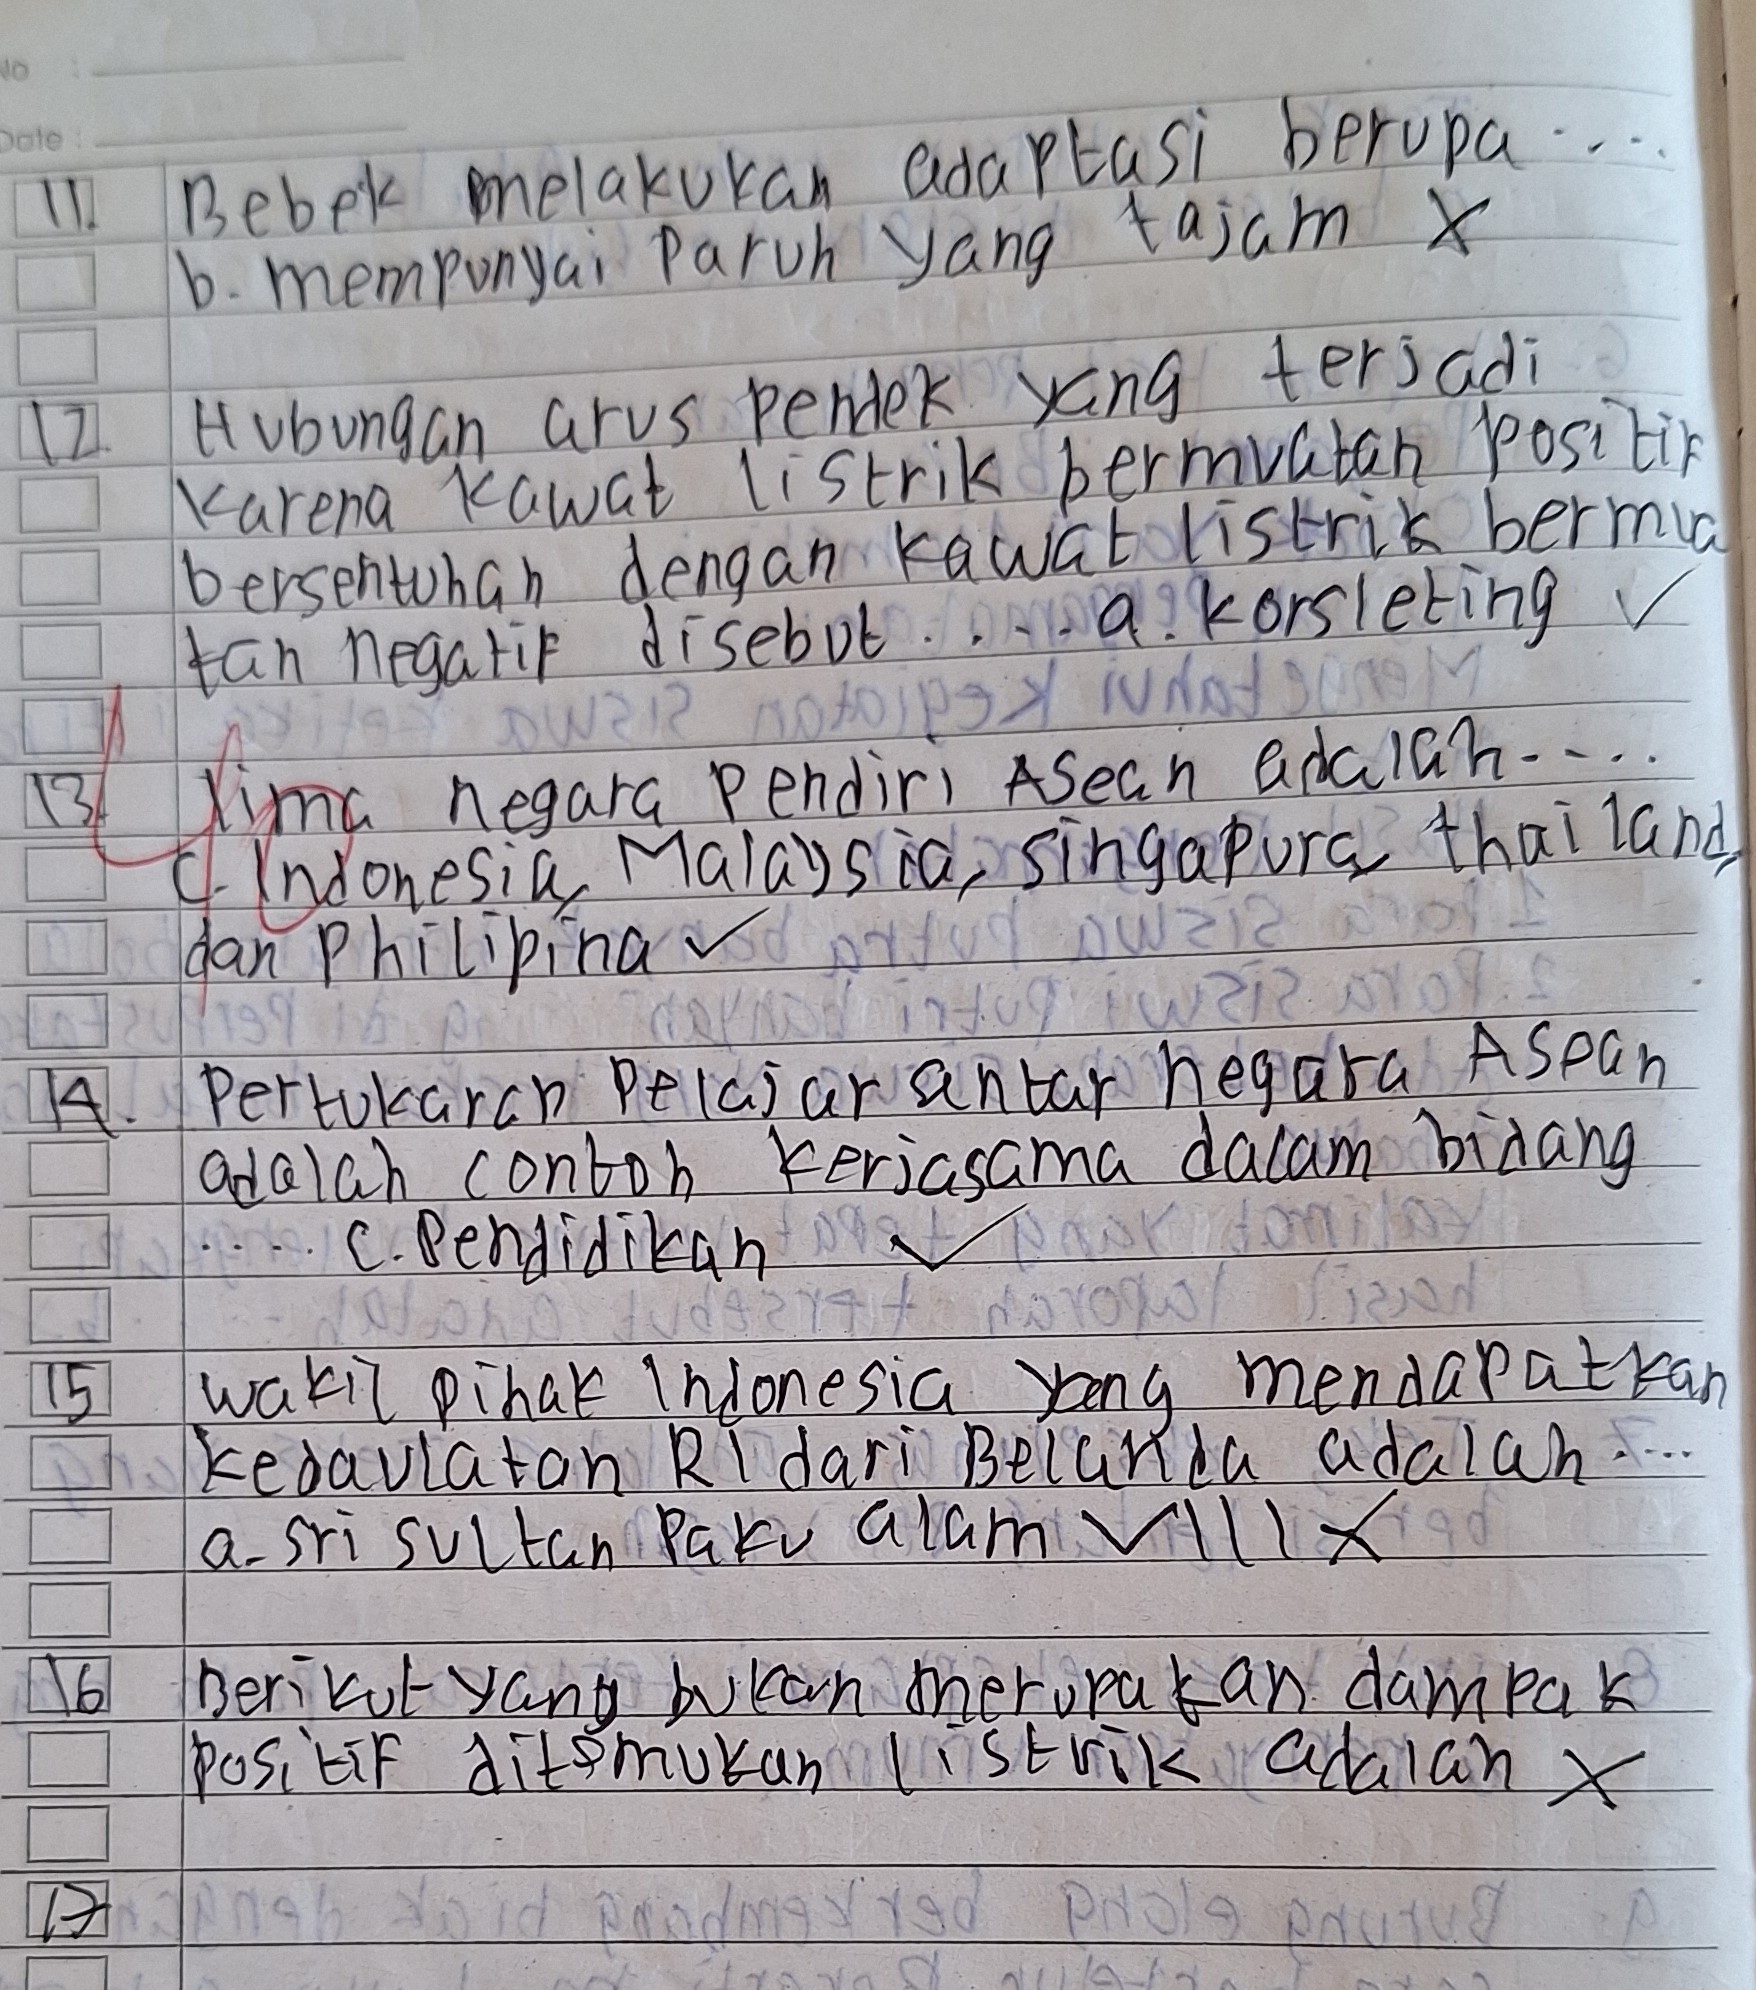 No :
Date :
11. Bebek melakukan adaptasi berupa ....
b. mempunyai Paruh yang tajam X
12. Hubungan arus pendek yang terjadi
karena kawat listrik bermuatan positif
bersentuhan dengan kawat listrik bermua
tan negatif disebut ..... a. korsleting ✓
13. lima negara Pendiri ASean adalah ....
c. Indonesia, Malaysia, singapura, thailand,
dan Philipina ✓
14. Pertukaran Pelajar antar negara ASean
adalah contoh kerjasama dalam bidang
..... c. Pendidikan ✓
15 wakil pihak Indonesia yang mendapatkan
kedaulatan RI dari Belanda adalah ....
a. sri sultan Paku alam VIII X
16 Berikut yang bukan merupakan dampak
positif ditemukan listrik adalah X
17